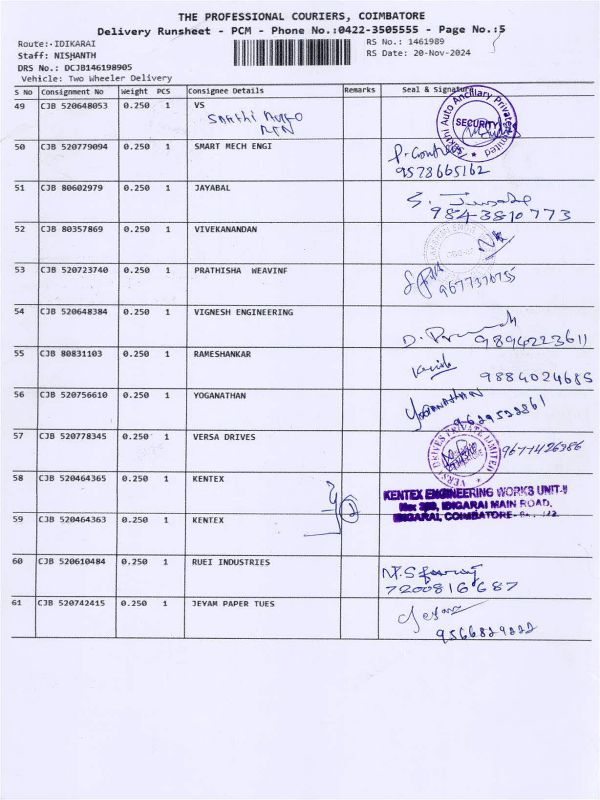 THE PROFESSIONAL COURIERS, COIMBATORE
Delivery Runsheet - PCM - Phone No.:0422-3505555 - Page No.:5
Route: IDIKARAI
RS No.: 1461989
Staff: NISHANTH
RS Date: 20-Nov-2024
DRS No.: DCJB146198905
Vehicle: Two Wheeler Delivery
S No Consignment No Weight PCS Consignee Details Remarks Seal & Signature
49 CJB 520648053 0.250 1 VS
SECURITY
50 CJB 520779094 0.250 1 SMART MECH ENGI
9578665162
51 CJB 80602979 0.250 1 JAYABAL
9843810773
52 CJB 80357869 0.250 1 VIVEKANANDAN
53 CJB 520723740 0.250 1 PRATHISHA WEAVINF
54 CJB 520648384 0.250 1 VIGNESH ENGINEERING
9894223611
55 CJB 80831103 0.250 1 RAMESHANKAR
9884024685
56 CJB 520756610 0.250 1 YOGANATHAN
YOGANATHAN
9629532861
57 CJB 520778345 0.250 1 VERSA DRIVES
VERSA DRIVES PRIVATE LIMITED
9677426386
58 CJB 520464365 0.250 1 KENTEX
KENTEX ENGINEERING WORKS UNIT-II
IDIGARAI MAIN ROAD,
IDIGARAI, COIMBATORE-
59 CJB 520464363 0.250 1 KENTEX
2
60 CJB 520610484 0.250 1 RUEI INDUSTRIES
7200816687
61 CJB 520742415 0.250 1 JEYAM PAPER TUES
9566829822